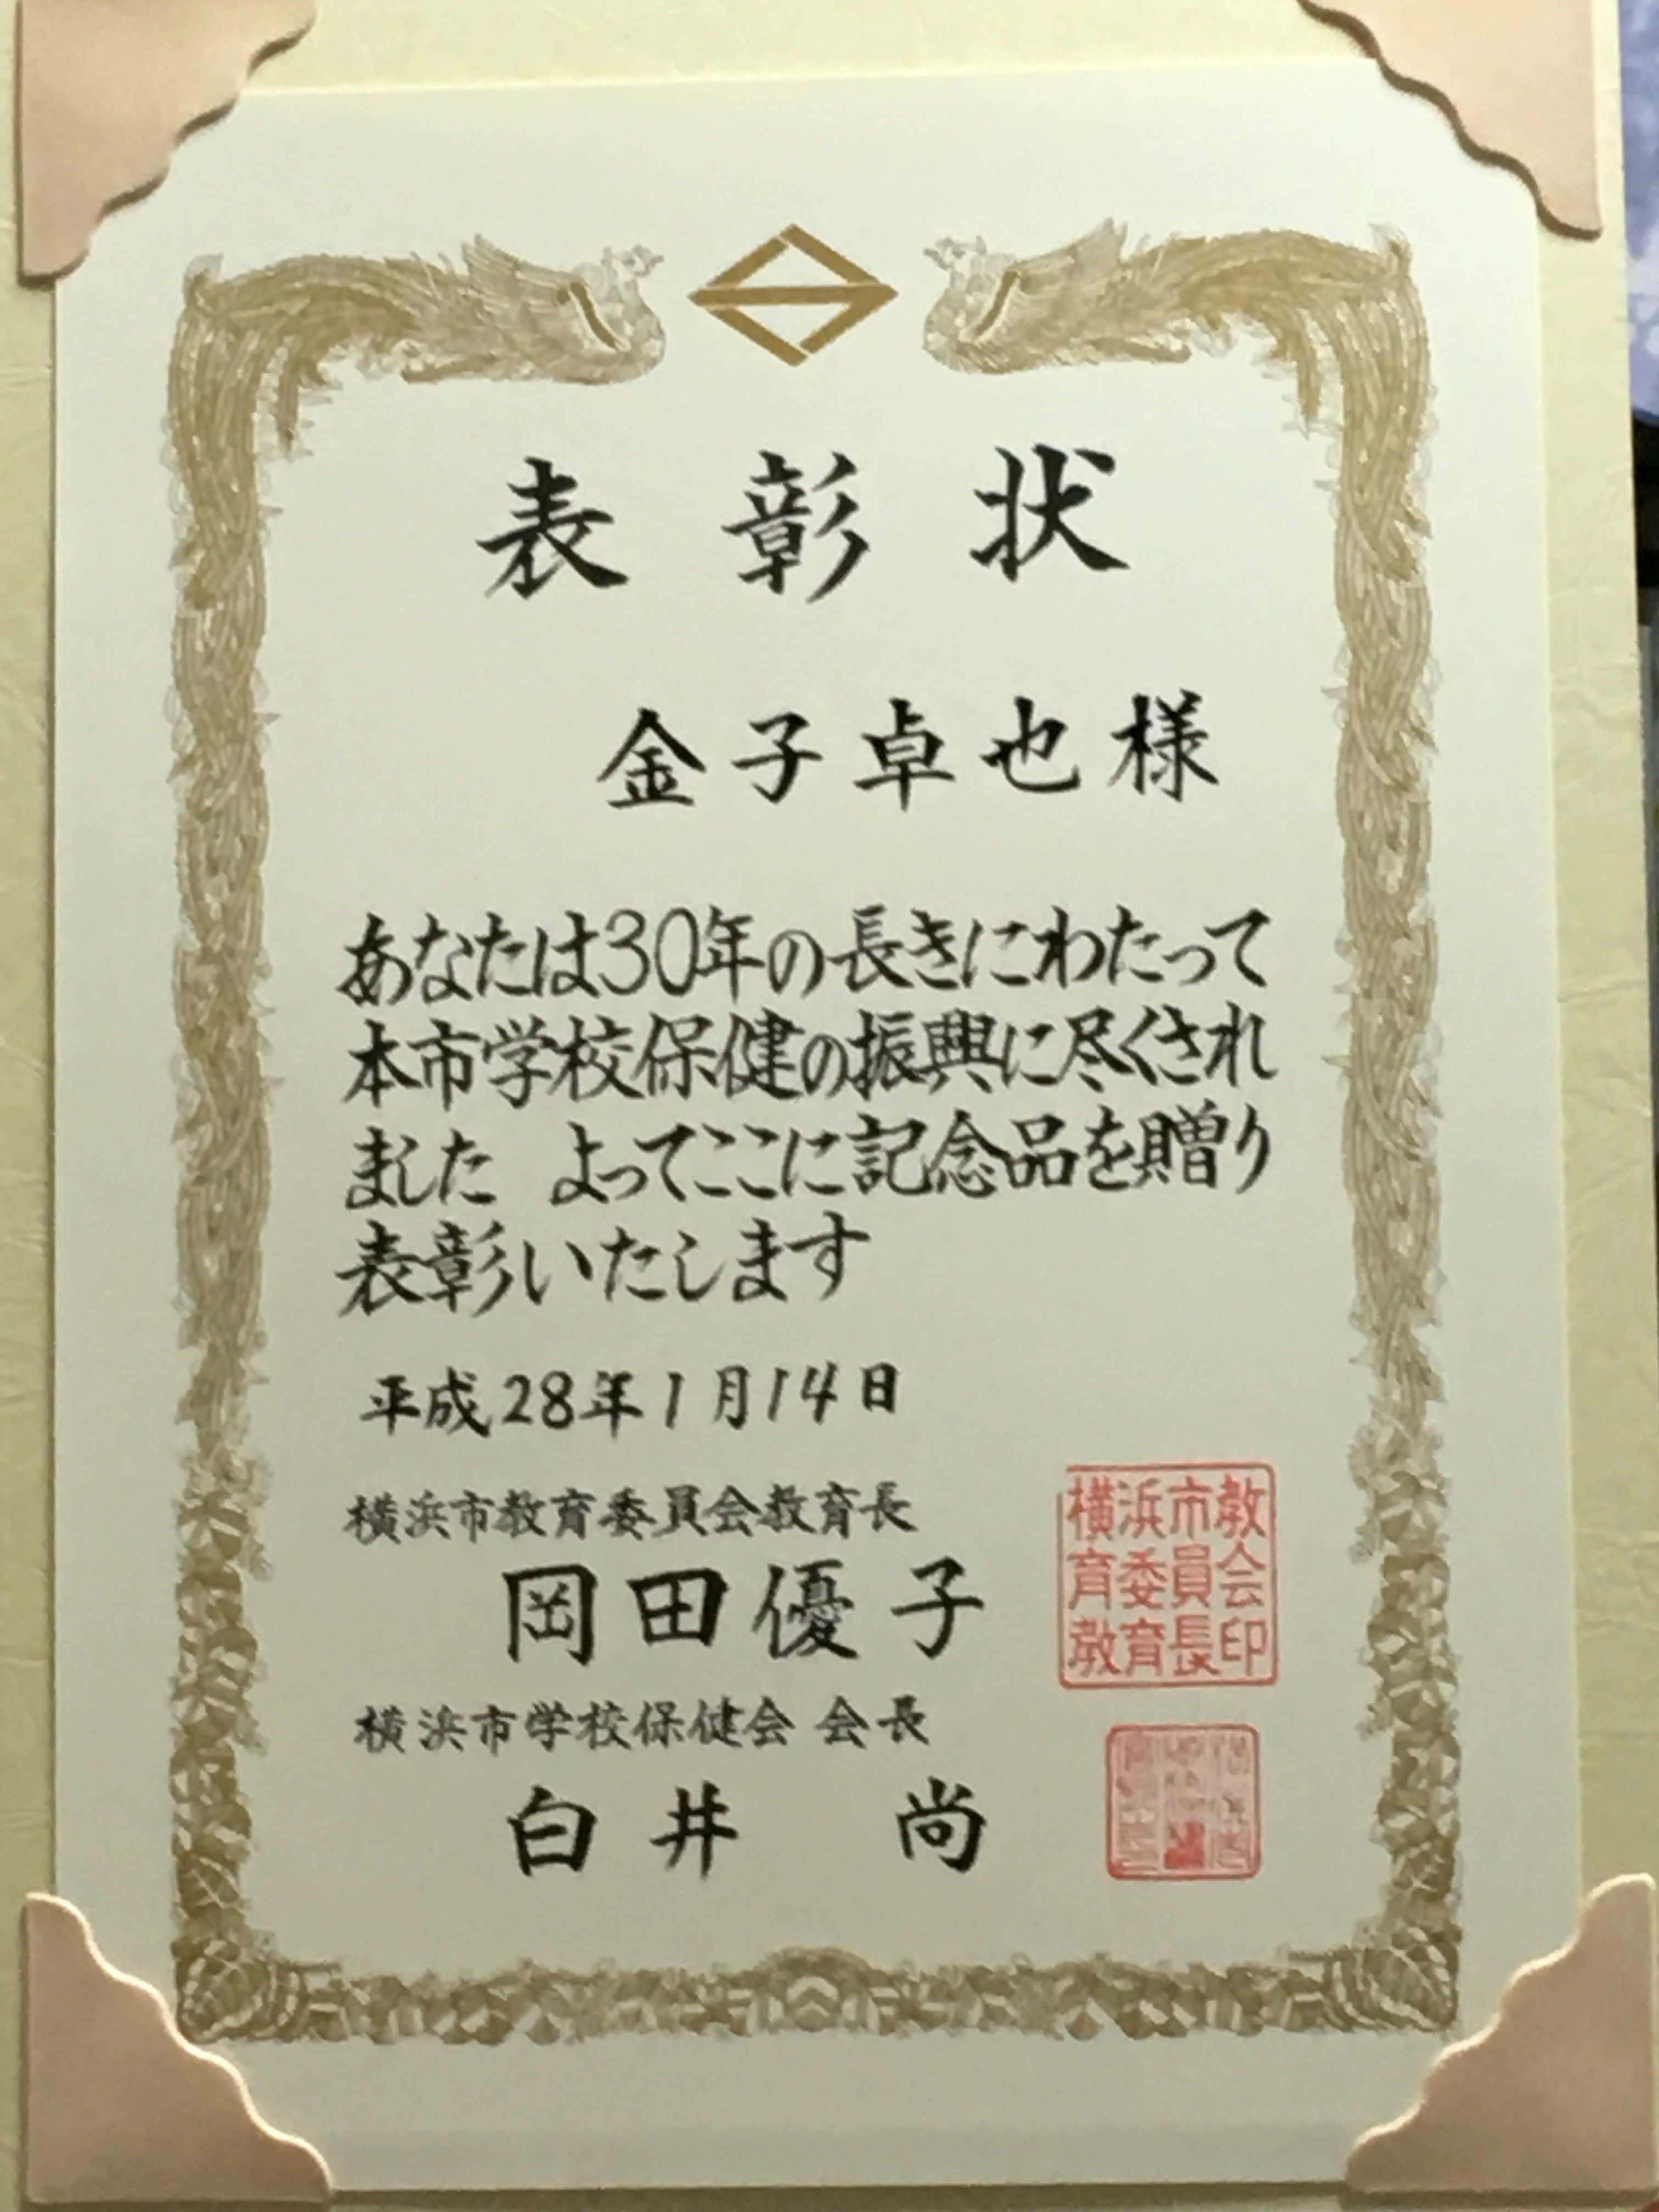 表彰状
金子卓也様
あなたは30年の長きにわたって
本市学校保健の振興に尽くされ
ました よってここに記念品を贈り
表彰いたします
平成28年1月14日
横浜市教育委員会教育長
岡田優子
横浜市学校保健会 会長
白井 尚
横浜市教
育委員会
教育長印